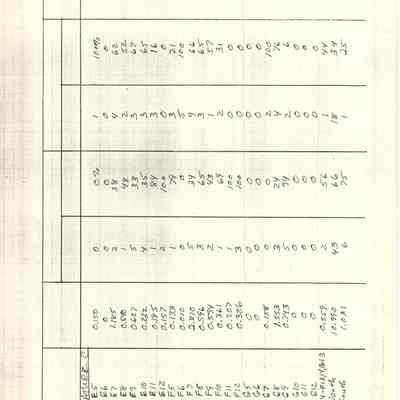 LAYER C
E5 0.150 0 0% 1 100%
E6 0 0 0 0 0
E7 1.185 2 38 4 62
E8 0.580 1 48 2 52
E9 0.627 5 33 3 67
E10 0.282 4 35 3 65
E11 0.185 1 84 3 16
E12 0.157 2 100 0 0
F5 0.133 1 79 3 21
F6 0.010 0 0 5 100
F7 2.810 5 34 9 66
F8 0.596 3 65 3 65
F9 0.594 2 43 1 57
F10 0.361 1 69 2 31
F11 0.207 1 100 0 0
F12 0.386 3 100 0 0
G5 0 0 0 0 0
G6 0 0 0 0 0
G7 0.138 0 0 2 100
G8 1.553 3 24 4 76
G9 0.743 5 94 2 6
G10 0 0 0 0 0
G11 0 0 0 0 0
G12 0 0 0 0 0
0.559 2 56 1 44
10.990 43 66 18 34
1.031 6 75 1 25